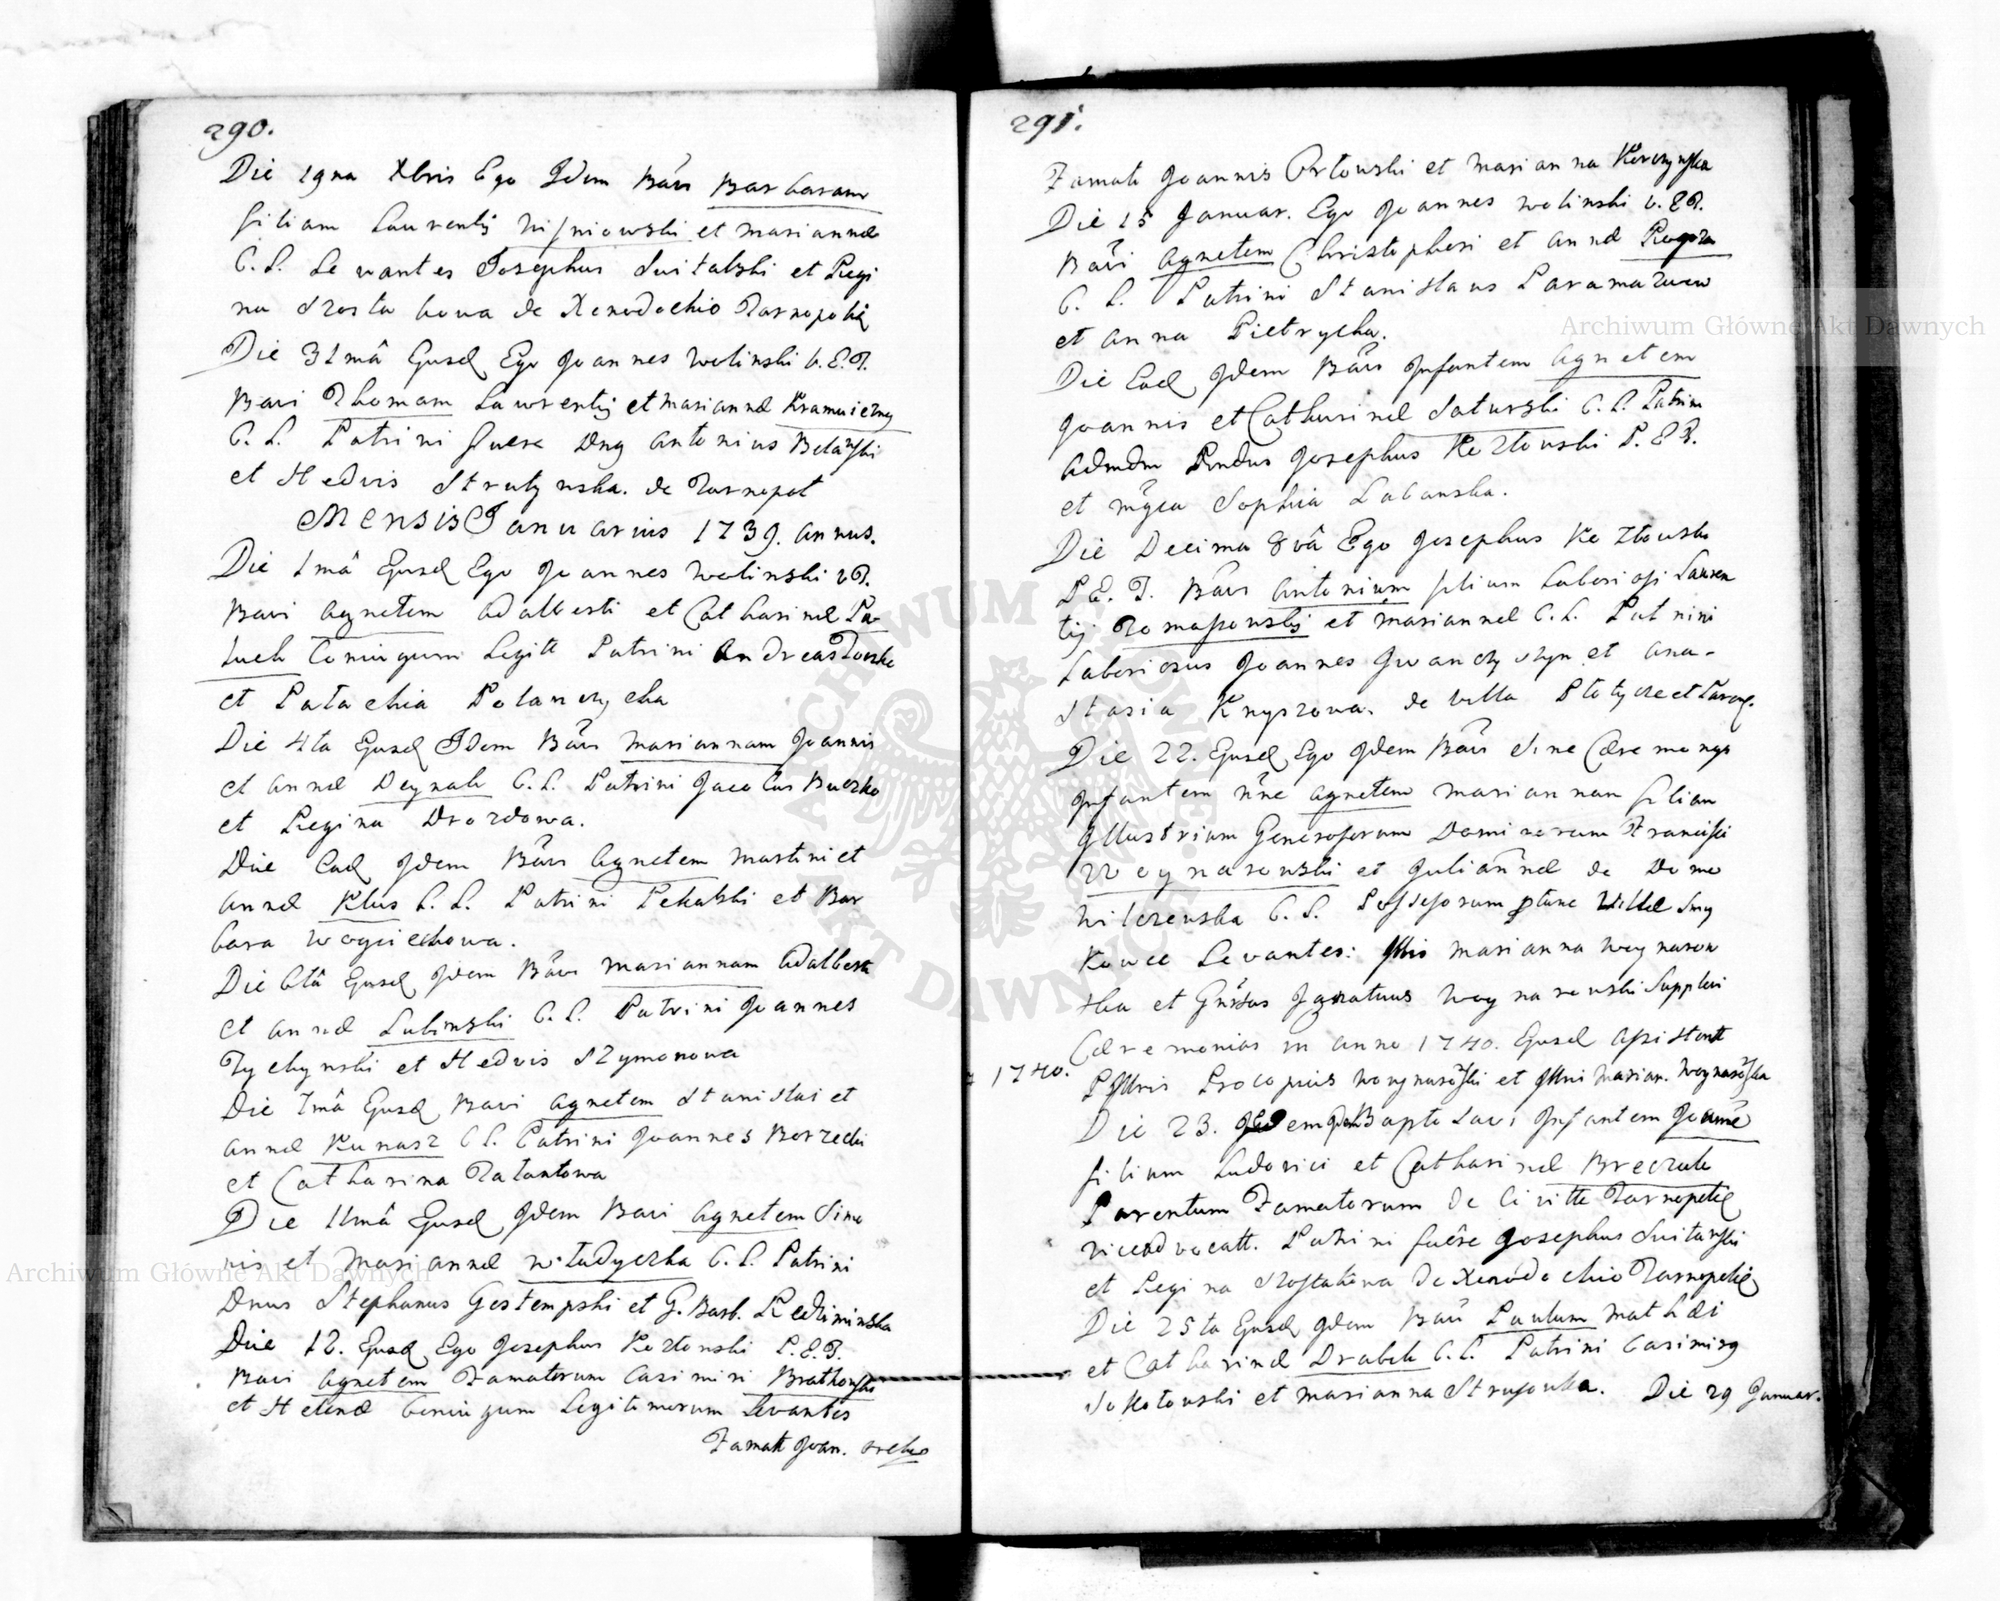 290.
Die 19na Xbris Ego Idem Bavi Barbaram
filiam Laurentij Wisniowski et Mariannæ
C. L. Levantes Josephus Switalski et Regi
na Szosta kowa de Xenodochio Tarnopoliē
Die 31mâ Eusd Ego Joannes Wolinski V.E.T.
Bavi Thomam Lawrentij et Mariannæ Kramwiczny
C. L. Patrini fuere Dng Antonius Belanski
et Hedvis Strutynska. de Tarnopol
Mensis Januarius 1739. annus.
Die 1mâ Eusd Ego Joannes Wolinski V.T.
Bavi Agnetem Adalberti et Catharinæ Pa-
luch Coniugum Legitt Patrini Andreas
et Patachia Polanczycha
Die 4ta Eusd Idem Bavi Mariannam Joannis
et Annæ Deynak C. L. Patrini Jacobus Buczko
et Regina Drozdowa.
Die Ead Idem Bavi Agnetem Martini et
Annæ Klus C. L. Patrini Pekalski et Bar
bara Woyciechowa.
Die 6tâ Eusd Idem Bavi Mariannam Adalberti
et Annæ Lubinski C. L. Patrini Joannes
Tychynski et Hedvis Szymonowa
Die 7mâ Eusd Bavi Agnetem Stanislai et
Annæ Kunasz C L. Patrini Joannes Borzecki
et Catharina Tatantowa
Die 11mâ Eusd Idem Bavi Agnetem Simo
nis et Mariannæ Wladyczka C. L. Patrini
Dnus Stephanus Gostempski et G. Barb. Redziminska
Die 12. Eusd Ego Josephus Kozlowski P.E.T.
Bavi Agnetem Famatorum Casimiri Bratkowski
et Helenæ Coniugum Legitimorum Levantes
Famatt Joan.
291.
Famatt Joannis Orlowski et Marianna Korczynska
Die 15 Januar. Ego Joannes Wolinski V.ET.
Bavi Agnetem Christophori et Annæ
C. L. Patrini Stanislaus
et Anna Pietrycha.
Die Ead Idem Bavi Infantem Agnetem
Joannis et Catharinæ Saturski C. L. Patrini
Admdm Rndus Josephus Kozlowski P. E T.
et Mgca Sophia Labanska.
Die Decima 8vâ Ego Josephus Kozlowski
P.E. T. Bavi Antonium filium Laboriosi Lauren
tij Tomaszewskij et Mariannæ C. L. Patrini
Laboriosus Joannes Iwanczyszyn et Ana-
stasia Knyszowa. de villa Plotycze et
Die 22. Eusd Ego Idem Bavi sine Cæremonys
Infantem nne Agnetem Mariannam filiam
Illustrium Generosorum Dominorum Francisci
Woynarowski et Juliannæ de Domo
Wilczewska C. L. Possessorum ptunc Villæ Smy
Kowce Levantes: Marianna Woynarow
ska et Gnosus Ignatius Woynarowski Supplevi
Cæremonias in anno 1740. Eusd Assistent
1740.
Procopius Woynarowski et Marian. Woynarowska
Die 23. Idem Baptisavi Infantem Joannē
filium Ludovici et Catharinæ Breczak
Parentum Famatorum de Civitte Tarnopoliē
Viceadvocatt. Patrini fuere Josephus Switalski
et Regina Szostakowa de Xenodochio Tarnopoliē
Die 25ta Eusd Idem Bavi Paulum Mathæi
et Catharinæ Drabik C. L. Patrini Casimirg
Sokolowski et Marianna Strusowka. Die 29 Januar.
Archiwum Główne Akt Dawnych
Archiwum Główne Akt Dawnych
ARCHIWUM GŁÓWNE AKT DAWNYCH